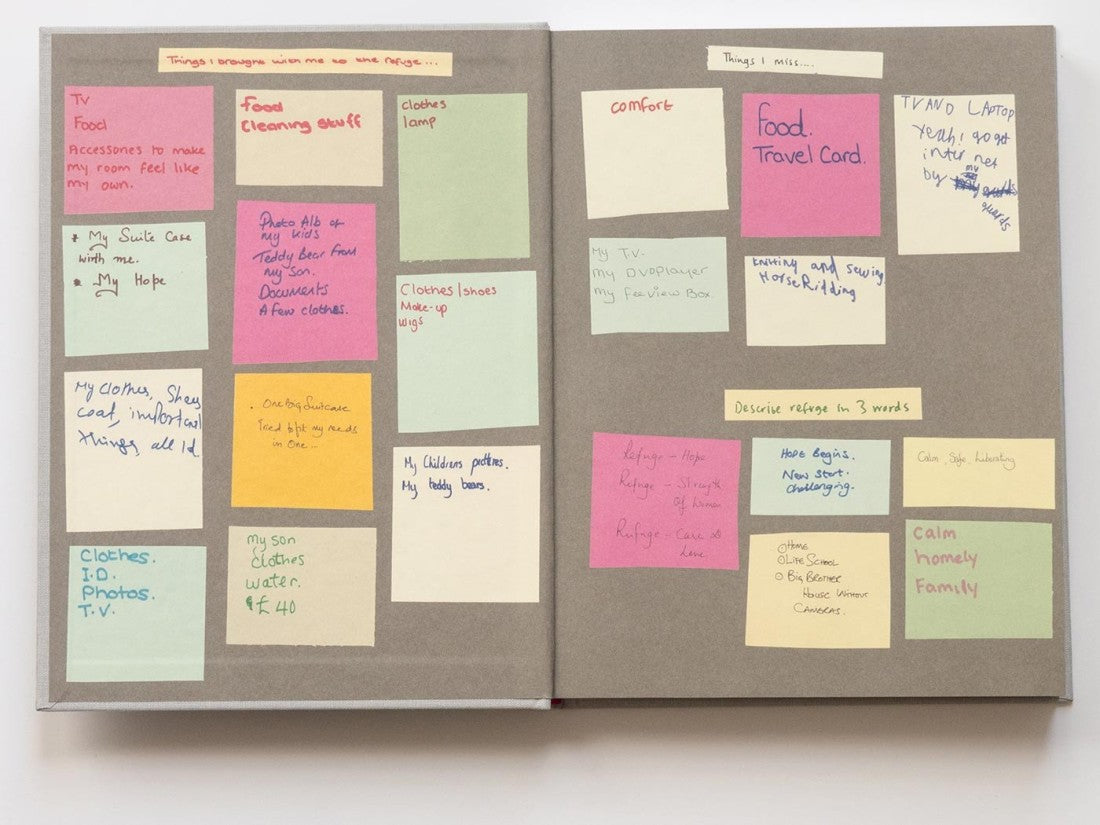 Things I brought with me to the refuge...
TV
Food
Accessories to make
my room feel like
my own.
Food
Cleaning stuff
clothes
lamp
My Suite Case
with me.
My Hope
Photo Alb of
my kids
Teddy Bear from
my son.
Documents
A few clothes.
Clothes/shoes
Make-up
Wigs
My clothes, Shoes
coat, important
things, all Id.
One Big Suitcase
Tried to fit my needs
in One...
My Childrens
My teddy bears.
Clothes.
I.D.
Photos.
T.V.
my son
clothes
water.
£40
Things I miss....
comfort
Food.
Travel Card.
TV AND LAPTOP
Yeah! go get
inter net
by my
My T.V.
my DVDplayer
my feeview Box.
Knitting and sewing
Horse Ridding
Describe refuge in 3 words
Refuge - Hope
Refuge - Strength
Of Women
Refuge - Care &
Love
Hope Begins.
New Start.
Challenging.
Calm, Safe, Liberating
Home
Life School
Big Brother
House Without
Cameras.
Calm
homely
Family